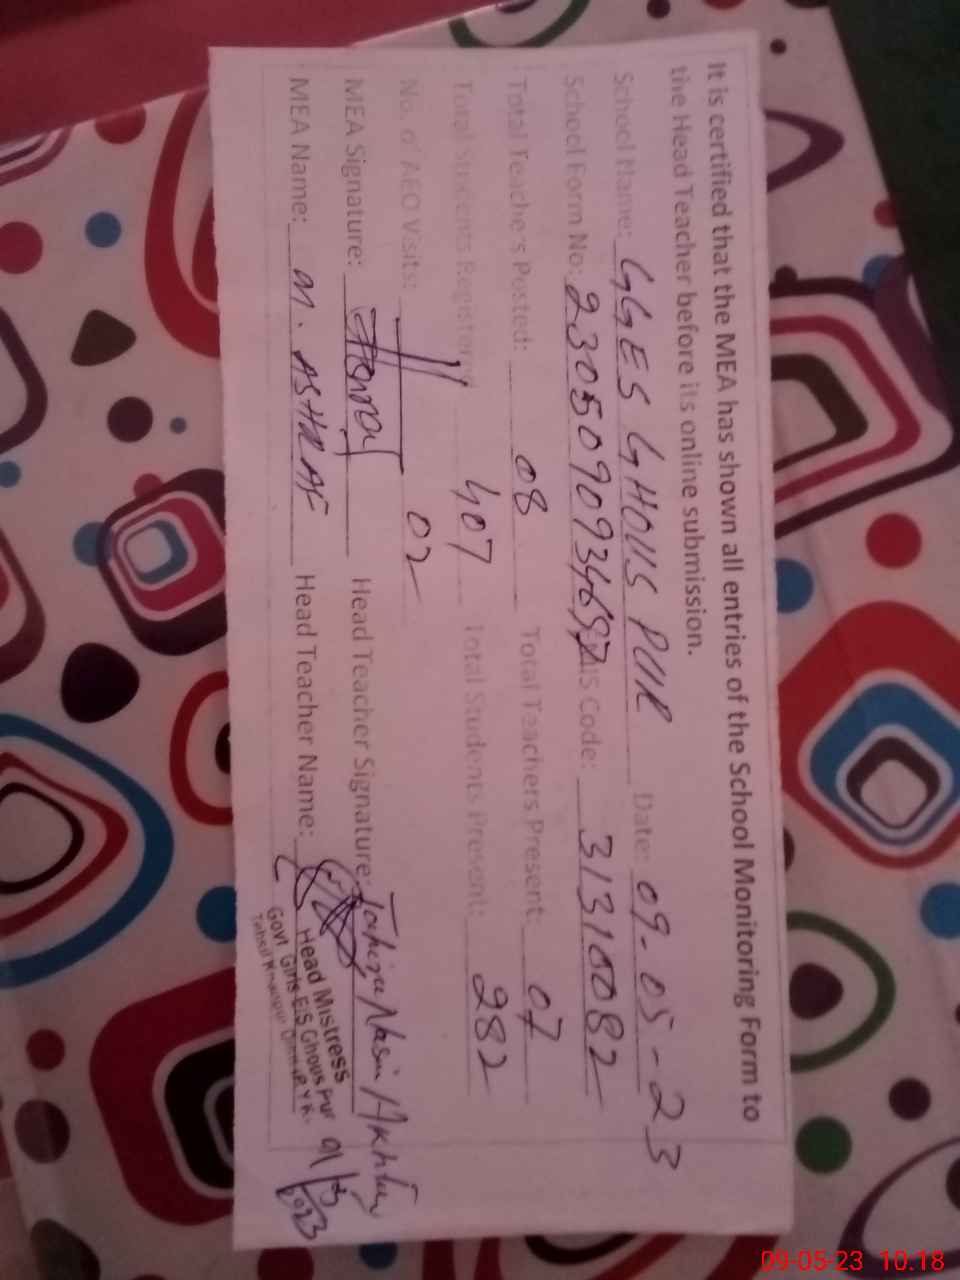 It is certified that the MEA has shown all entries of the School Monitoring Form to
the Head Teacher before its online submission.
School Name: GGES GHOUS PUR Date: 09-05-23
School Form No: 2305090934657 EMIS Code: 31310082
Total Teachers Posted: 08 Total Teachers Present: 07
Total Students Registered: 407 Total Students Present: 282
No. of AEO Visits: 02
MEA Signature: Head Teacher Signature: Tahira Nasim Akhtar
MEA Name: M. ASHRAF Head Teacher Name:
Head Mistress
Govt Girls E/S Ghous Pur
Tehsil
2023
09-05-23 10.18